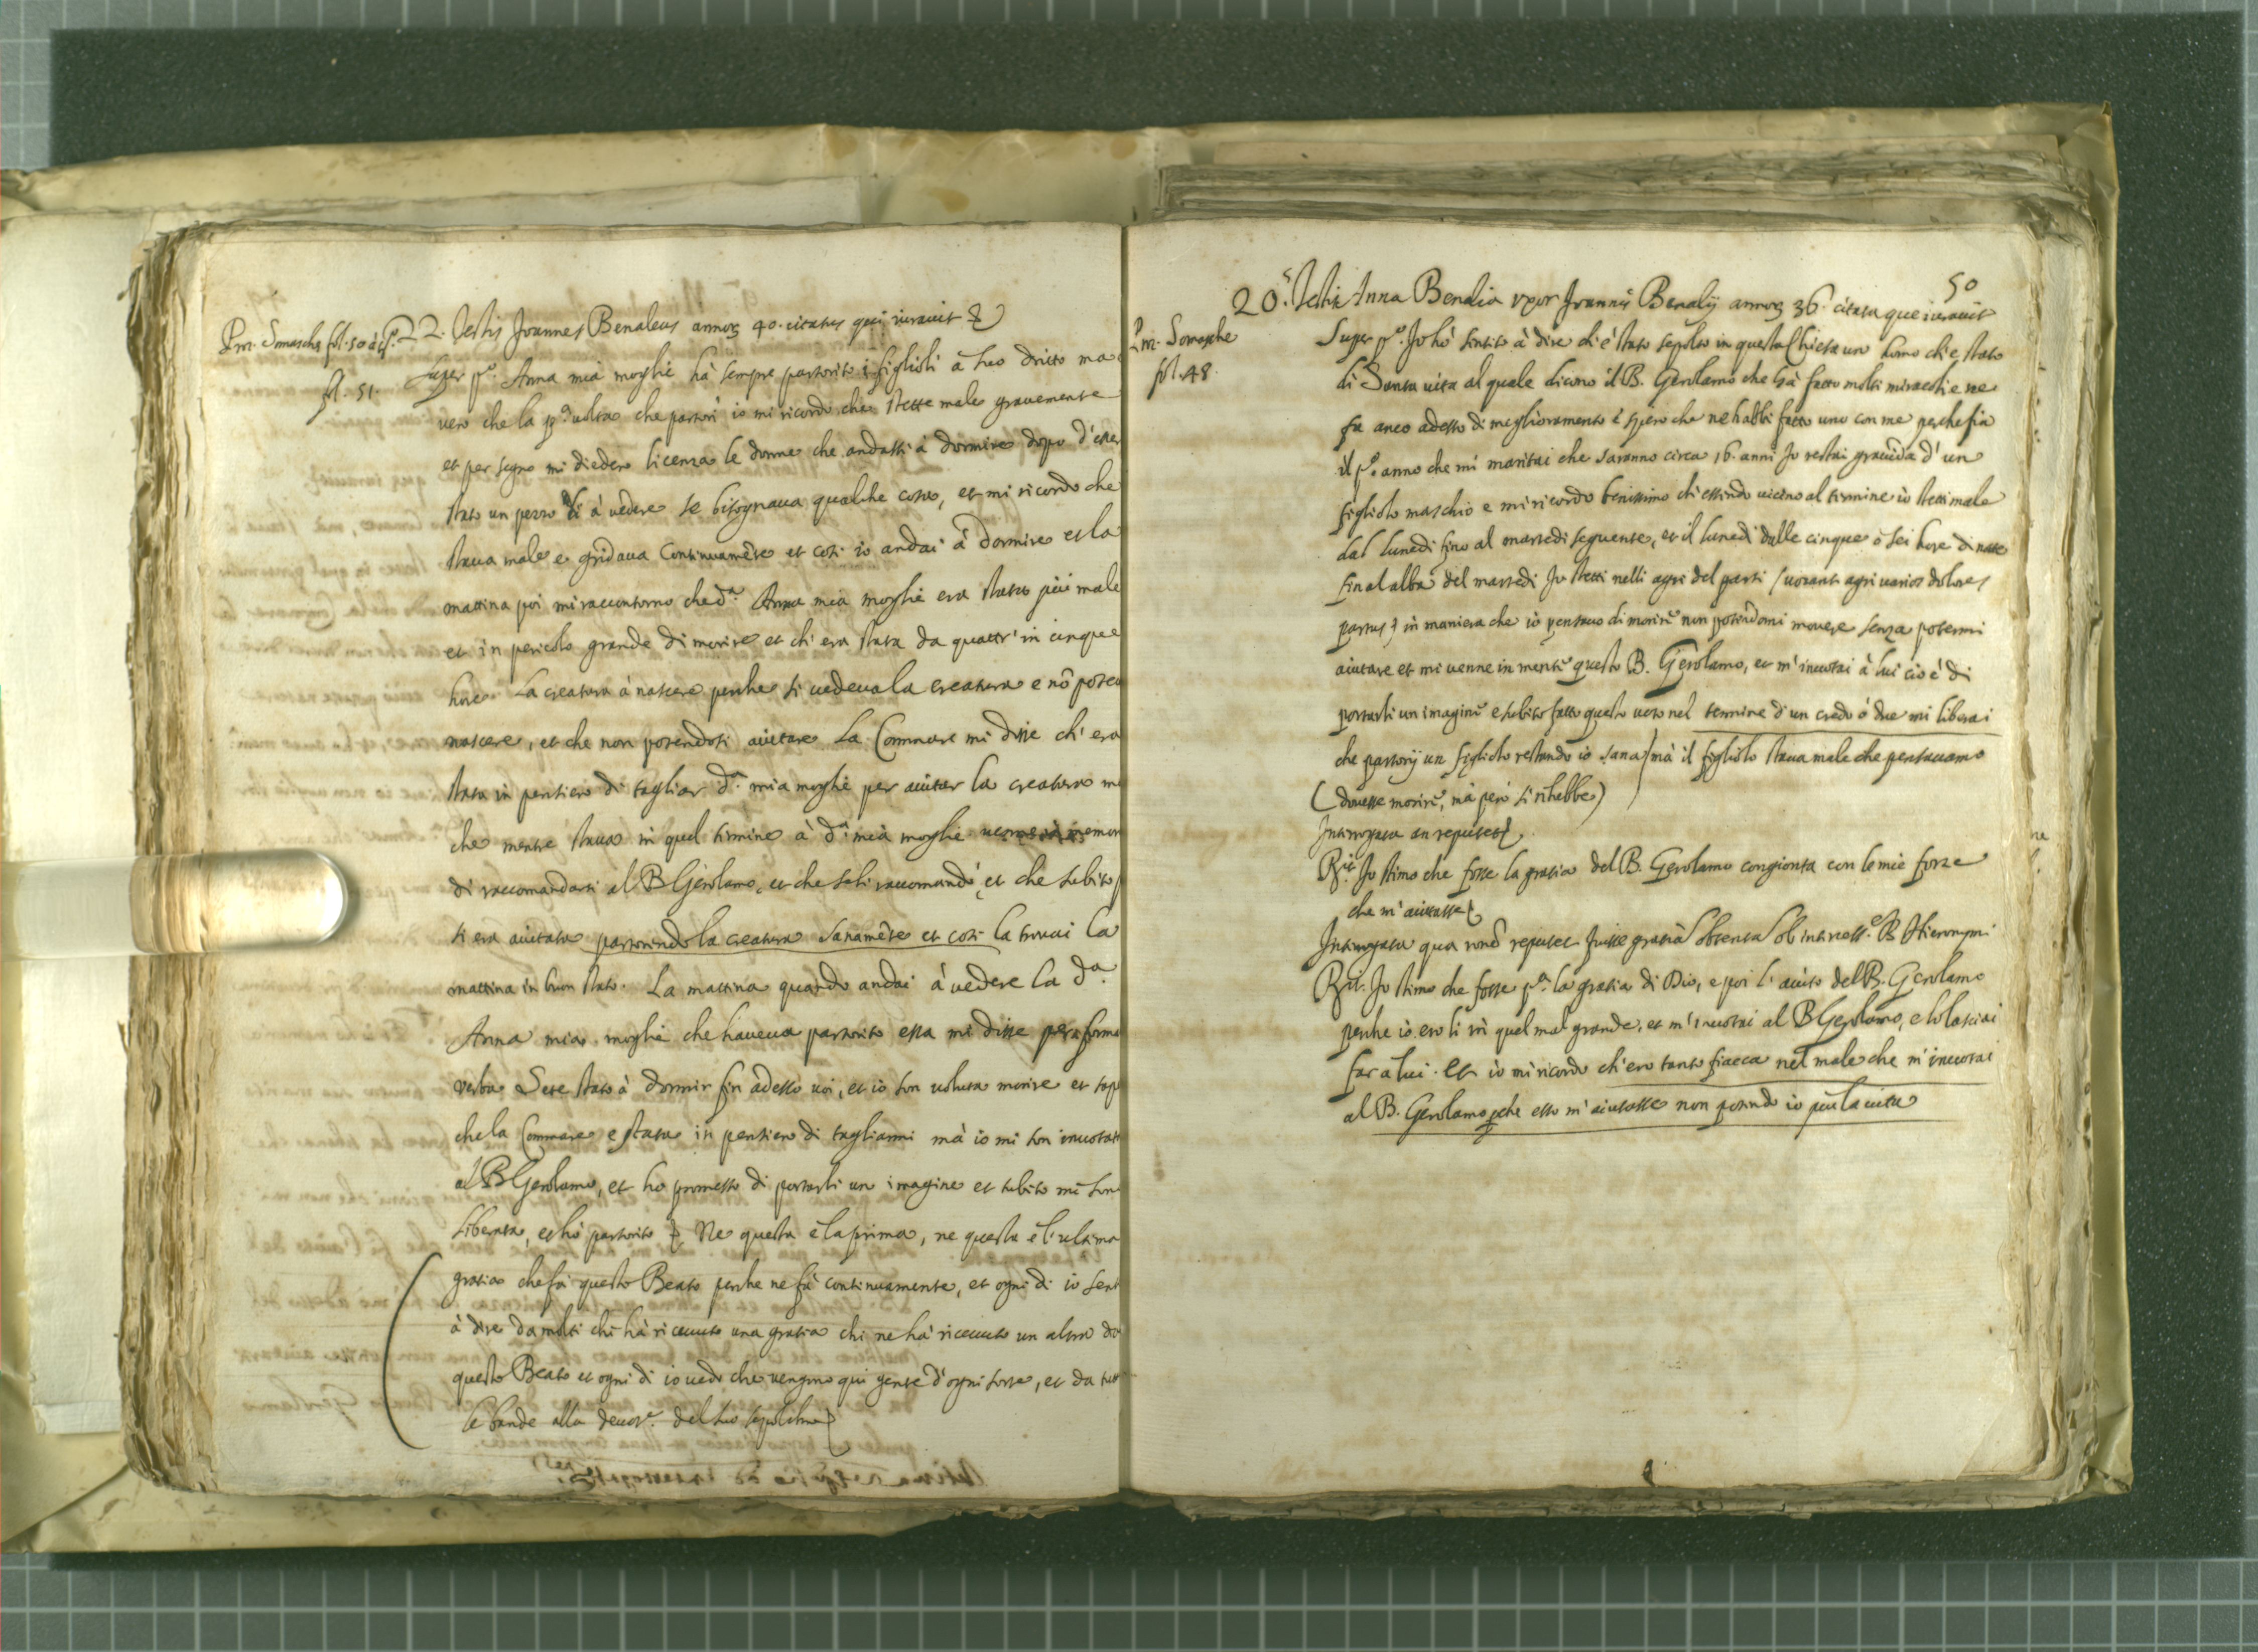 Pm. Somasche fol. 50 à tº.
fol. 51.
22. Testis Joannes Benaleus annoꝝ 40. citatus qui iuravit &
Super pº. Anna mia moglie hà sempre partorito i figlioli à suo dritto ma
vero che la pª. volta che partorì io mi ricordo che stette male grauemente
et per segno mi diedero licenza le donne che andassi à dormire dopo d'esser
stato un pezzo lì à vedere se bisognaua qualche cosa, et mi ricordo che
staua male e gridaua continuamẽte et così io andai à dormire et la
mattina poi mi raccontorno che dª. Anna mia moglie era stata più male
et in pericolo grande di morire et ch'era stata da quattr'in cinque
hore la creatura à nascere perche si vedeua la creatura e nõ poteu
nascere, et che non potendosi aiutare la Commare mi disse ch'era
stata in pensiero di tagliar dª. mia moglie per aiutar la creatura ma
che mentre staua in quel termine à dª. mia moglie memor
di raccomandarsi al B Gerolamo, et che seli raccomandò, et che subito
si era aiutata partorendo la creatura sanamẽte et così la trouai la
mattina in buon stato. La mattina quando andai à vedere la dª.
Anna mia moglie che haueua partorito essa mi disse per forma
verba Sete stato à dormir fin adesso uoi, et io son uoluta morire et sap
che la Commare e stata in pensiero di tagliarmi mà io mi son inuotata
al B Gerolamo, et ho promesso di portarli un imagine et subito mi son
liberata, et hò partorito & Ne questa è la prima, ne questa è l'ultima
gratia che fa questo Beato perche ne fà continuamente, et ogni dì io sent
à dire da molti chi hà riceuuto una gratia chi ne hà riceuuto un altra da
questo Beato et ogni dì io vedo che vengono qui gente d'ogni sorte, et da tutt
le bande alla deuotº. del suo sepolchro &
50
Pm. Somasche
fol. 48.
20. Testis Anna Benalia uxor Joannis Benalij annoꝝ 36. citata que iurauit
Super pº. Io hò sentito à dire ch'è stato sepolto in questa Chiesa un homo ch'e stato
di Santa uita al quale dicono il B. Gerolamo che hà fatto molti miracoli e ne
fa anco adesso di meglioramento è spero che ne habbi fatto uno con me perche fia
il pº. anno che mi maritai che saranno circa 16. anni Io restai grauida d'un
figliolo maschio e mi ricordo benissimo ch'essendo uicino al termine io stetti male
dal lunedi fino al martedi seguente, et il lunedi dalle cinque ò sei hore di notte
fin al alba del martedi Io stetti nelli agri del parti (uocant agri uarios dolores
partus) in maniera che io pensauo di morire non potendomi mouere senza potermi
aiutare et mi uenne in mente questo B. Gerolamo, et m'inuotai à lui cioè di
portarli un imagine e subito fatto questo uoto nel termine d'un credo ò due mi liberai
che partorij un figliolo restando io sana) mà il figliolo staua male che pensauamo
(douesse morire, mà però si rihebbe)
Interrogata an reputet &
Rit. Io stimo che fosse la gratia del B. Gerolamo congionta con le mie forze
che m'aiutasse &
Interrogata qua ronẽ reputet fuisse gratiã obtentã ob intercess.e B Hieronymi
Rit. Io stimo che fosse pª. la gratia di Dio, e poi l'aiuto del B. Gerolamo
perche io ero lì in quel mal grande, et m'inuotai al B Gerolamo, e lo lasciai
far a lui. Et io mi ricordo ch'ero tanto fiacca nel male che m'inuotai
al B. Gerolamo perche esso m'aiutasse non potendo io più la uita